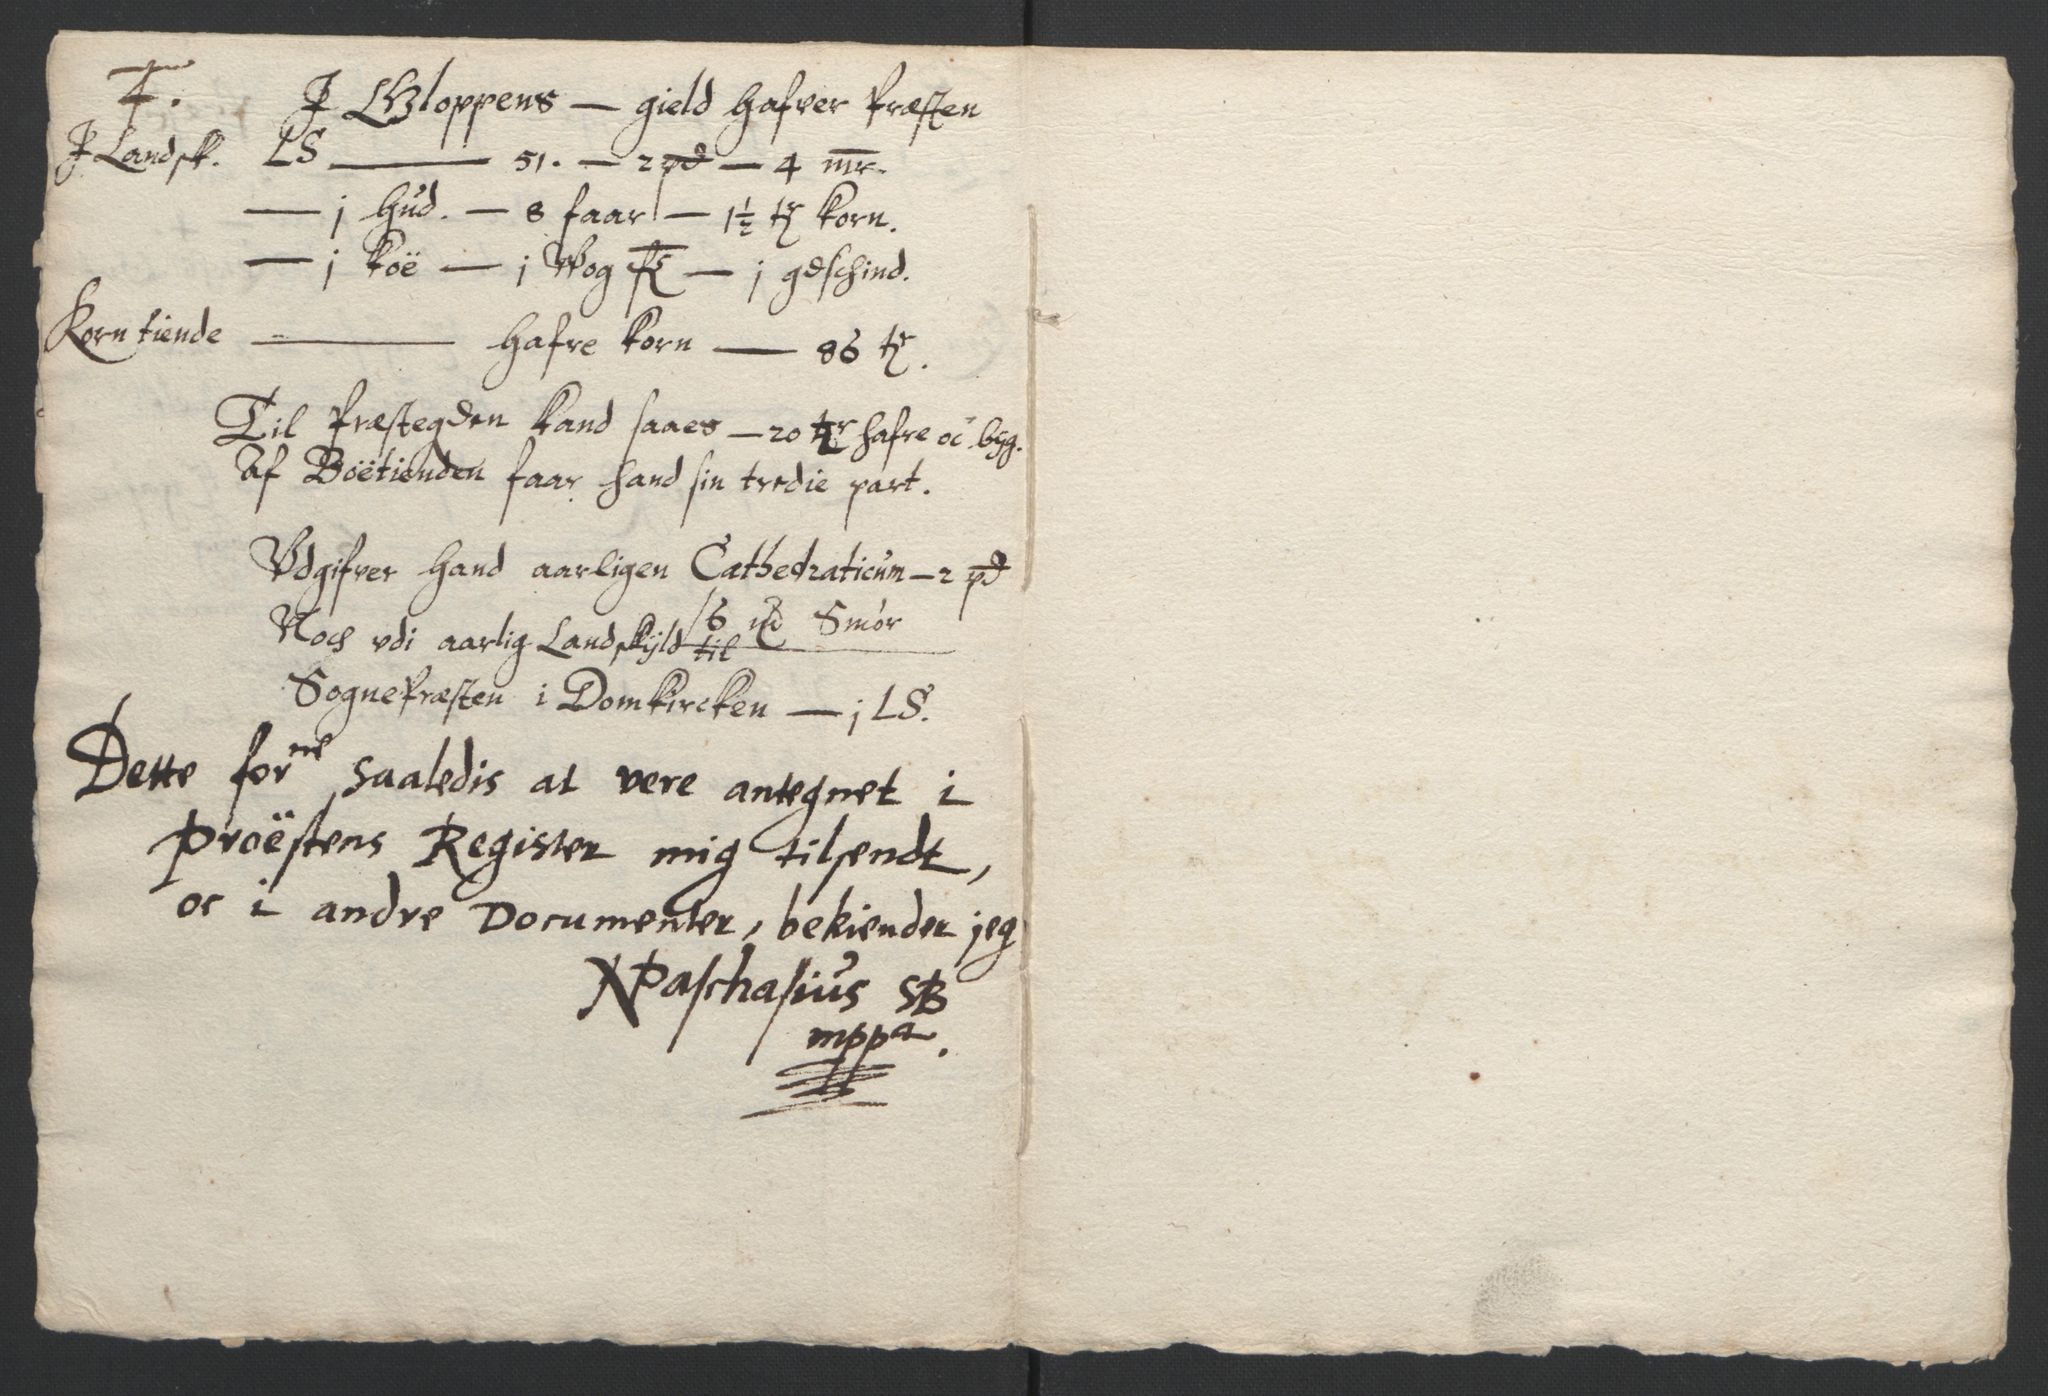 4.
J Gloppens — gield hafver Præsten
J Landsk. LS — 51. — 2 pd — 4 mr.
— j hud. — 8 faar — 1½ tr korn.
— j koë — j Wog — j gdschind.
Korn tiende — hafre korn — 86 tr.
Til Præstegden kand saaes — 20 tr hafre oc byg.
Af Boëtienden faar hand sin tredie part.
Vdgifver hand aarligen Cathedraticum — 2 pd
16 Smör
Noch vdi aarlig Landskyld til
Sognepræsten i Domkircken — j LS.
Dette forne saaledis at vere antegnet i
Proëstens Register mig tilsendt,
oc i andre Documenter, bekiender jeg
NPaschasius SB
mppa.